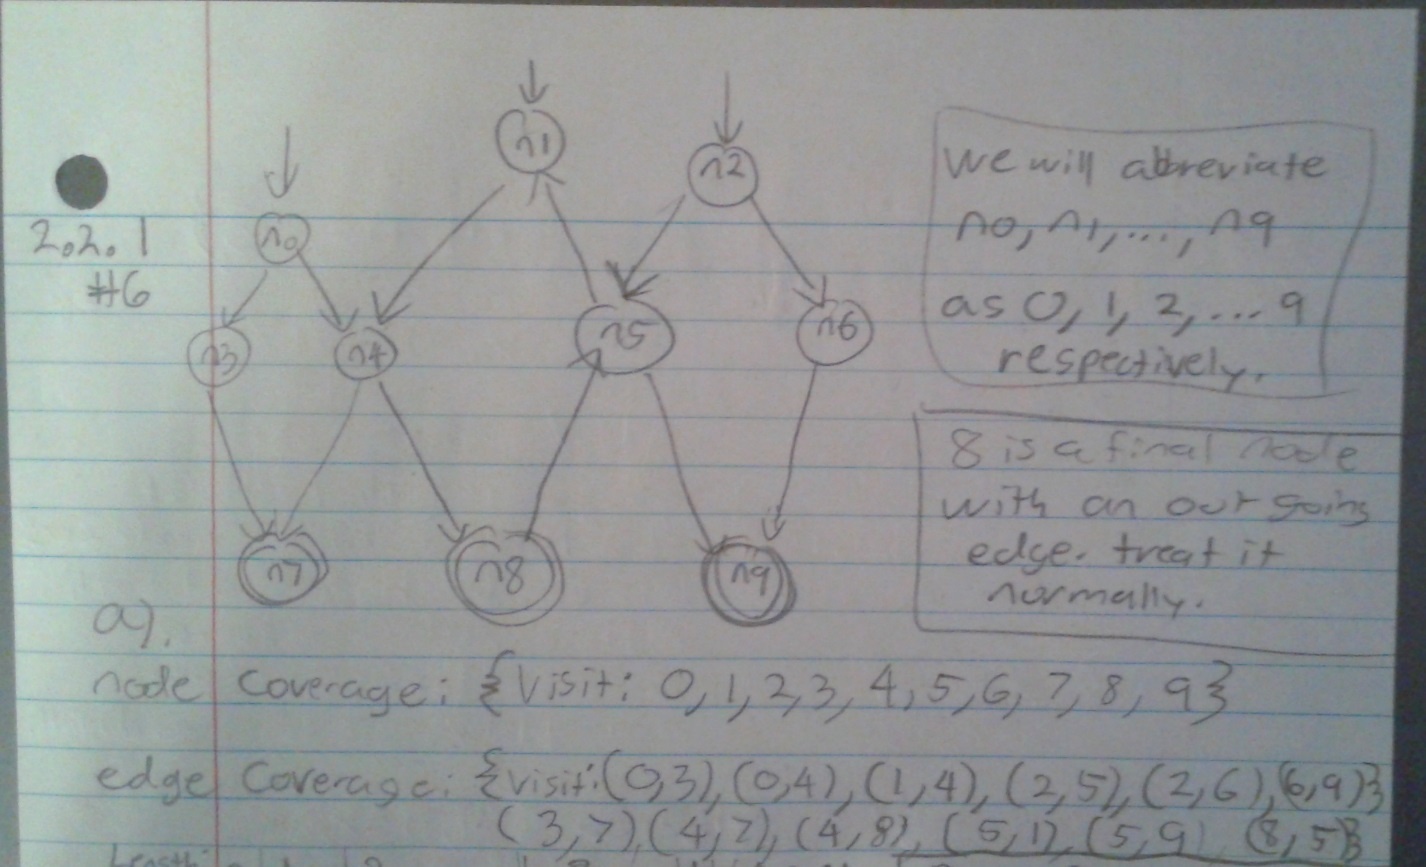 n1
n2
n0
2.2.1
#6
n3
n4
n5
n6
n7
n8
n9
we will abbreviate
n0, n1, ..., n9
as 0, 1, 2, ... 9
respectively.
8 is a final node
with an out going
edge. treat it
normally.
a).
node coverage: {visit: 0, 1, 2, 3, 4, 5, 6, 7, 8, 9}
edge coverage: {visit: (0,3), (0,4), (1,4), (2,5), (2,6), (6,9)}
(3,7), (4,7), (4,8), (5,1), (5,9) (8,5)}